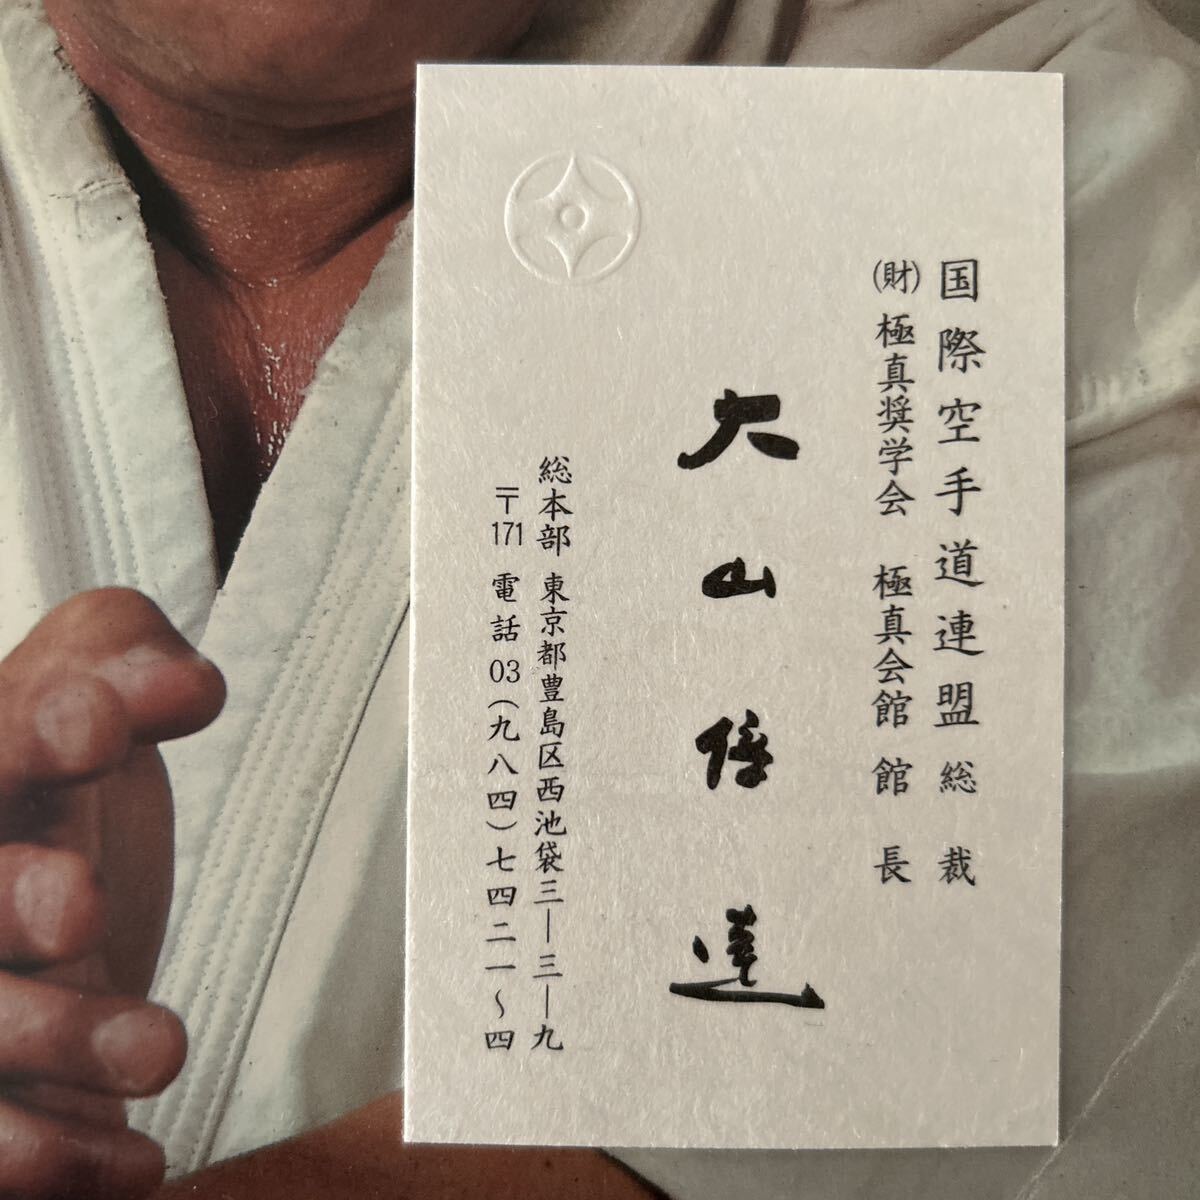 国際空手道連盟 総裁
(財)極真奨学会 極真会館 館長
大山倍達
総本部 東京都豊島区西池袋三―三―九
〒171 電話 03(九八四)七四二一~四